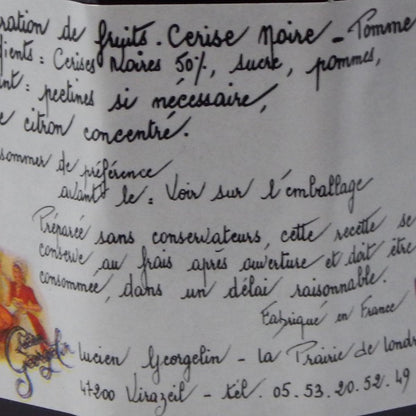 ration de fruits. Cerise Noire - Pomme
dients: Cerises Noires 50%, sucre, pommes,
ant: pectines si nécessaire,
e citron concentré.
sommer de préférence
avant le: Voir sur l'emballage
Préparée sans conservateurs, cette recette se
conserve au frais après ouverture et doit être
consommée, dans un délai raisonnable.
Fabriqué en France
Lucien Georgelin - La Prairie de Londr
47200 Virazeil - tél. 05.53.20.52.49
Lucien
Georgelin